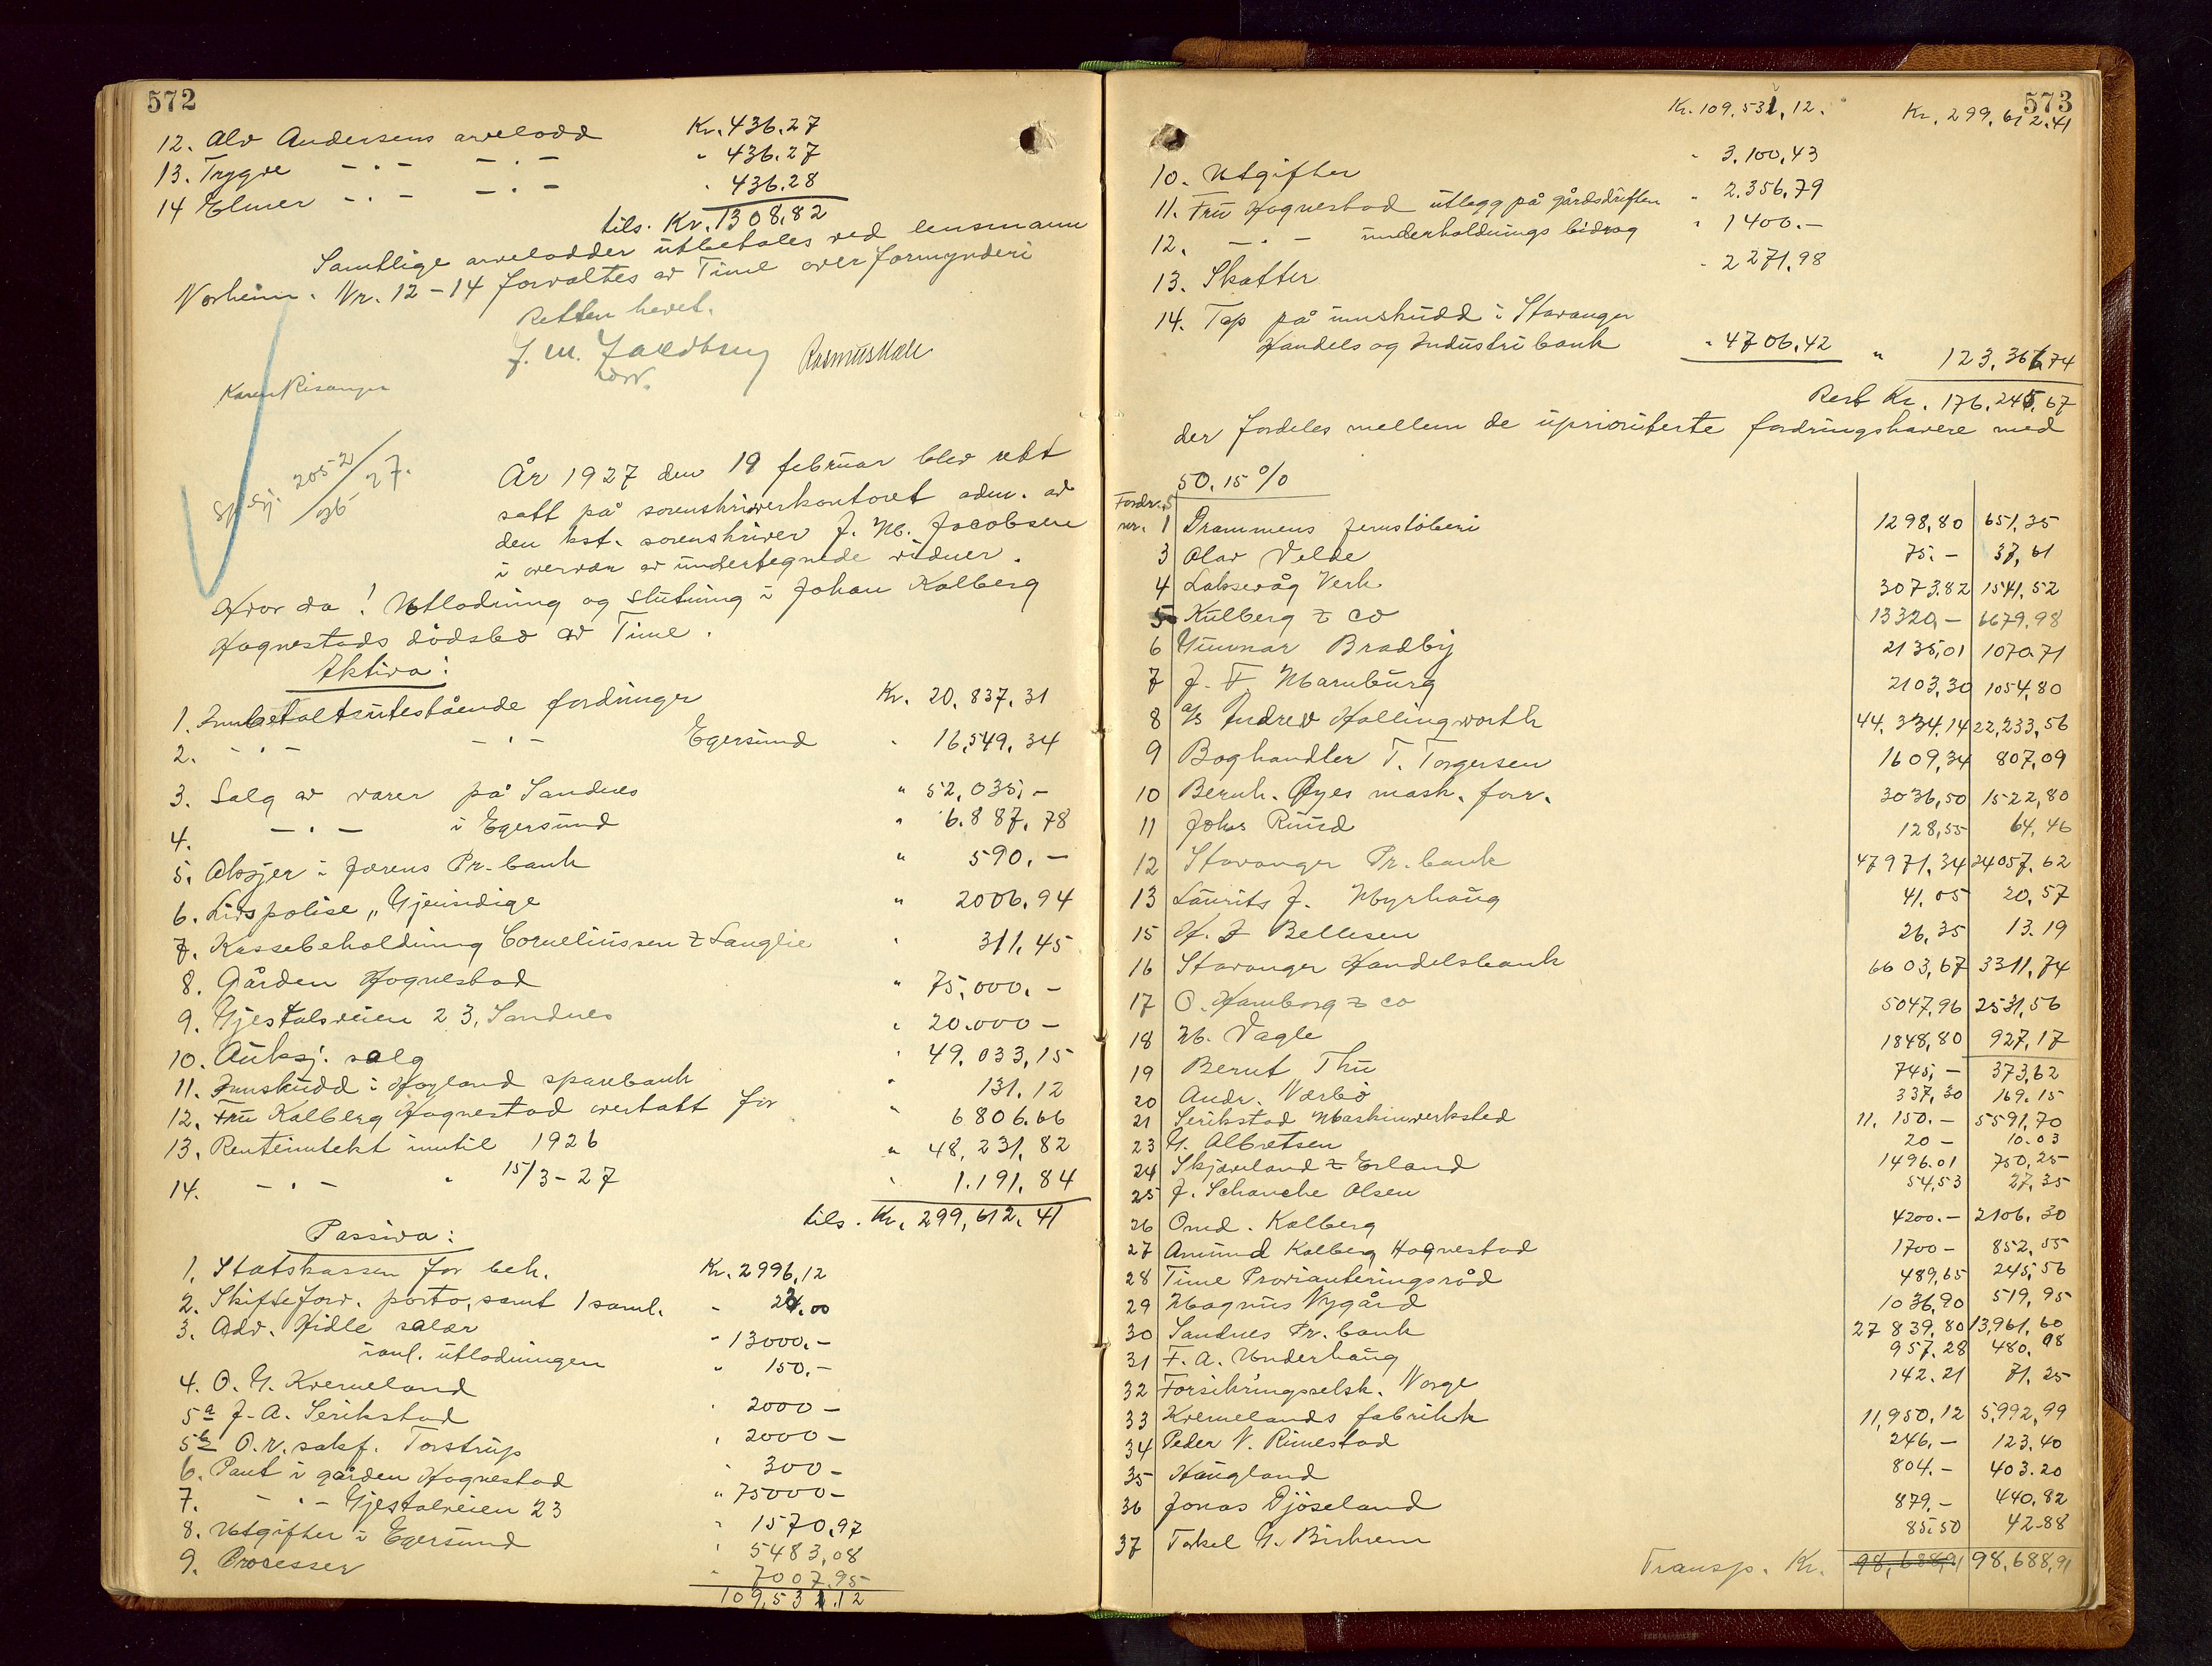 572
12. Alv Andersens arvelodd Kr. 436.27
13. Trygve -"- -"- " 436.27
14 Elmer -"- -"- " 436.28
tils. Kr. 1308,82
Samtlige arvelodder utbetales ved lensmann
Norheim. Nr. 12-14 forvaltes av Time overformynderi
Retten hevet.
Karen Risanger
Sp. sj. 205-2/26-27.
År 1927 den 19 februar blev rett
satt på sorenskriverkontoret adm. av
den kst. sorenskriver J. M. Jacobsen
i overvær av undertegnede vidner.
Hvor da! Utlodning og slutning i Johan Kalberg
Hognestads dødsbo av Time.
Aktiva:
1. Innbetalt utestående fordringer Kr. 20,837,31
2. -"- -"- Egersund " 16,549,34
3. Salg av varer på Sandnes " 52,035,-
4. -"- i Egersund " 6.887,78
5. Aksjer i Jærens Pr.bank " 590.-
6. Livspolise "Gjensidige " 2006.94
7. Kassebeholdning Corneliussen & Langlie " 311.45
8. Gården Hognestad " 75,000.-
9. Gjestalsveien 23, Sandnes " 20.000-
10. Auksj. salg " 49,033,15
11. Innskudd i Høyland sparebank " 131.12
12. Fru Kalberg Hognestad overtatt for " 6806.66
13. Renteinntekt inntil 1926 " 48,231,82
14. -"- " 15/3-27 " 1.191,84
tils. Kr. 299,612.41
Passiva:
1. Statskassen for beh. Kr. 2996,12
2. Skifteforv. porto, samt 1 saml. " 24.00
3. Adv. Hidle salær " 13000.-
innl. utlodningen " 150.-
4. O. G. Kverneland " 2000-
5a J. A. Serikstad " 2000-
5b O.r.sakf. Torstrup " 300-
6. Pant i gården Hognestad " 75000-
7. -"- Gjestalveien 23 " 1570,97
8. Utgifter i Egersund " 5483,08
9. Prosesser " 7007.95
109,531.12
573
Kr. 109,531,12. Kr. 299,612.41
10. Utgifter " 3.100,43
11. Fru Hognestad utlegg på gårdsdriften " 2.356,79
12. -"- underholdnings bidrag " 1400.-
13. Skatter " 2271,98
14. Tap på innskudd i Stavanger
Handels og Industribank " 4706,42 " 123,366,74
Rest Kr. 176,245,67
der fordeles mellem de uprioriterte fordringshavere med
50.15%
Fordr.s
nr. 1 Drammens jernstøberi 1298,80 651,35
3 Olav Velde 75.- 37,61
4 Laksevåg Verk. 3073.82 1541,52
5 Kulberg & co 13320,- 6679,98
6 Gunnar Bradby 2135,01 1070.71
7 J. F. Marnburg 2103,30 1054,80
8 a/s Andrew Hollingworth 44,334,14 22,233,56
9 Boghandler T. Torgersen 1609,34 807,09
10 Bernh. Øyes mask. forr. 3036,50 1522,80
11 Johs Ruud 128,55 64,46
12 Stavanger Pr.bank 47971,34 24057,62
13 Laurits J. Myrhaug 41,05 20,57
15 H. J Bellesen 26,35 13.19
16 Stavanger Handelsbank 6603,67 3311,74
17 O. Hamborg & co 5047,96 2531,56
18 M. Vagle 1848,80 927,17
19 Bernt Thu 745,- 373,62
20 Andr. Nærbø 337,30 169.15
21 Serikstad Maskinverksted 11,150.- 5591,70
23 G. Albretsen 20- 10.03
24 Skjæveland & Erland 1496.01 750,25
25 J. Schanche Olsen 54,53 27,35
26 Omd. Kalberg 4200.- 2106,30
27 Amund Kalberg Hognestad 1700- 852,55
28 Time Provianteringsråd 489,65 245,56
29 Magnus Nygård 1036,90 519,95
30 Sandnes Pr.bank 27839,80 13,961,60
31 F. A. Underhaug 957,28 480,08
32 Forsikringsselsk. Norge 142.21 71,25
33 Kvernelands fabrikk 11,950,12 5,992,99
34 Peder N. Rimestad 246,- 123,40
35 Haugland 804.- 403.20
36 Jonas Djøseland 879,- 440,82
37 Torkel G. Birkrem 85,50 42.88
Transp. Kr. 98,688,91 98,688,91